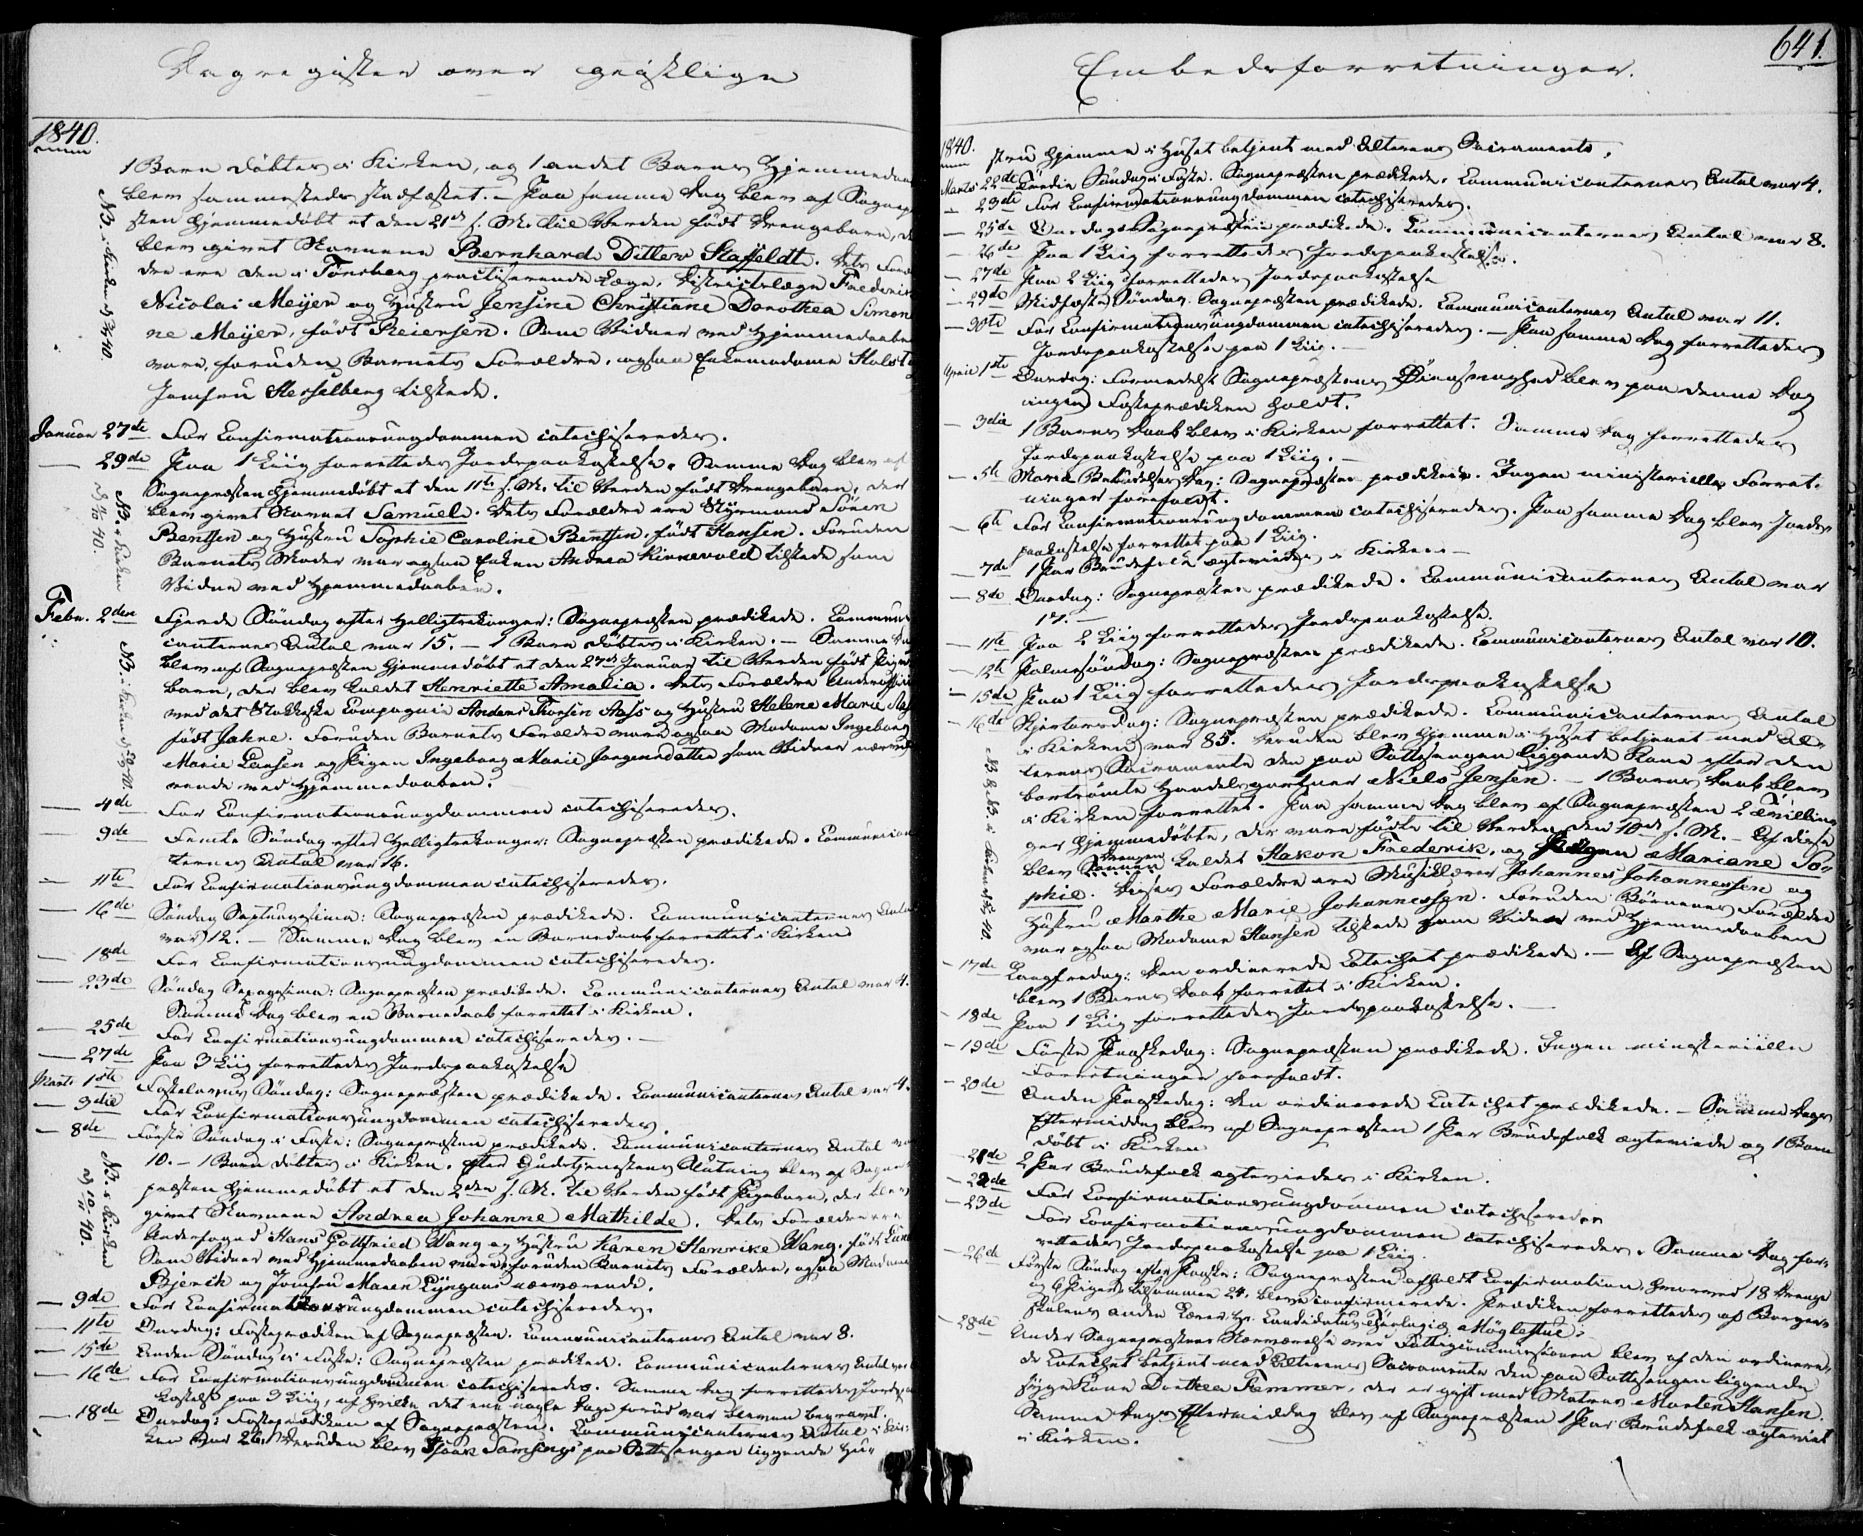 Dagregister over geistlige
1840.
1 Barn døbtes i Kirken, og 1 andet Barns Hjemmedaab
blev sammesteds stadfæstet. – Paa samme Dag blev af Sognepræ-
sten hjemmedøbt et den 21de f. M. til Verden født Drengebarn, der
blev givet Navnene Bernhard Ditlev Staffeldt. Dets Foræl-
dre ere den i Tønsberg practiserende Læge, Districtslæge Frederik
Nicolai Meijer og Hustru Jensine Christiane Dorothea Simo-
ne Meijer, født Reiersen. Som Vidner ved Hjemmedaaben
vare, foruden Barnets Forældre, ogsaa Enkemadame Holst og
Jomfru Hesselberg tilstede.
Januar 27de For Confirmationsungdommen catechiseredes.
— 29de Paa 1 Liig forrettedes Jordspaakastelse. Samme Dag blev af
Sognepræsten hjemmedøbt et den 11te f. M. til Verden født Drengebarn, der
blev givet Navnet Samuel. Dets Forældre ere Styrmand Sören
Bentsen og Hustru Sophie Caroline Bentsen, født Hansen. Foruden
Barnets Moder var ogsaa Enken Andrea Kinnevold tilstede som
Vidne ved Hjemmedaaben.
Febr. 2den Fjerde Søndag efter Helligtrekonger: Sognepræsten prædikede. Communi-
canternes Antal var 15. – 1 Barn døbtes i Kirken. – Samme Dag
blev af Sognepræsten hjemmedøbt et den 27de Januar til Verden født Pige-
barn, der blev kaldet Henriette Amalia. Dets Forældre
ved det Stokkeske Compagnie Anders Thorsen Aass og Hustru Helene Marie Aass
født Jahre. Foruden Barnets Forældre vare ogsaa Madame Ingeborg
Marie Larsen og Pigen Ingeborg Marie Jørgensdatter som Vidner nærvæ-
rende ved Hjemmedaaben.
— 4de For Confirmationsungdommen catechiseredes.
— 9de Femte Søndag efter Helligtrekonger: Sognepræsten prædikede. Communican-
ternes Antal var 16.
— 11te For Confirmationsungdommen catechiseredes.
— 16de Søndag Septuagesima: Sognepræsten prædikede. Communicanternes Antal
var 12. – Samme Dag blev en Barnedaab forrettet i Kirken
— 18de For Confirmationsungdommen catechiseredes.
— 23de Søndag Sexagesima: Sognepræsten prædikede. Communicanternes Antal var 4.
Samme Dag blev en Barnedaab forrettet i Kirken.
— 25de For Confirmationsungdommen catechiseredes. –
— 27de Paa 3 Liig forrettedes Jordspaakastelse
Marts 1ste Fastelavns Søndag: Sognepræsten prædikede. Communicanternes Antal var 4.
— 3die For Confirmationsungdommen catechiseredes.
— 8de Første Søndag i Faste: Sognepræsten prædikede. Communicanternes Antal var
10. – 1 Barn døbtes i Kirken. Efter Gudstjenestens Slutning blev af Sogne-
præsten hjemmedøbt et den 2den f. M. til Verden født Pigebarn, der blev
givet Navnene Andrea Johanne Mathilde. Dets Forældre ere
Underfoged Hans Gottfried Wang og Hustru Karen Henrike Wang, født Lund
Som Vidner ved Hjemmedaaben vare, foruden Barnets Forældre, ogsaa Madame
Bjerck og Jomfru Maren Lÿngaas nærværende.
— 9de For Confirmationsungdommen catechiseredes.
— 11te Onsdag: Fasteprædiken af Sognepræsten. Communicanternes Antal var 8.
— 15de Anden Søndag i Faste: Sognepræsten prædikede. Communicanternes Antal var
— 16de For Confirmationsungdommen catechiseredes. Samme Dag forrettedes Jordspaa-
kastelse paa 3 Liig, af hvilke det ene nogle Dage forud var bleven begravet.
— 18de Onsdag: Fasteprædiken af Sognepræsten. Communicanternes Antal i Kir-
ken var 26. Desuden blev Isaak Samsings paa Sottesengen liggende Hu-
NB. i Kirken
NB. i Kirken
NB. i Kirken
NB. i Kirken
Embedsforretninger.
641.
1840.
stru hjemme i Huset betjent med Alterens Sacramente.
Marts 22de Tredie Søndag i Faste. Sognepræsten prædikede. Communicanternes Antal var 4.
— 23de For Confirmationsungdommen catechiseredes.
— 25de Onsdag: Sognepræsten prædikede. Communicanternes Antal var 8.
— 26de Paa 1 Liig forrettedes Jordspaakastelse.
— 27de Paa 2 Liig forrettedes Jordspaakastelse
— 29de Midfaste Søndag. Sognepræsten prædikede. Communicanternes Antal var 11.
— 30te For Confirmationsungdommen catechiseredes. – Paa samme Dag forrettedes
Jordspaakastelse paa 1 Liig. –
April 1ste Onsdag: Formedelst Sognepræstens Øiensvaghed blev paa denne Dag
ingen Fasteprædiken holdt.
— 3die 1 Barns Daab blev i Kirken forrettet. Samme Dag forrettedes
Jordspaakastelse paa 1 Liig. –
— 5te Mariæ Bebudelses Dag: Sognepræsten prædikede. Ingen ministerielle Forret-
ninger forefaldt.
— 6te For Confirmationsungdommen catechiseredes. Paa samme Dag blev Jords-
paakastelse forrettet paa 1 Liig.
— 7de 1 Par Brudefolk ægteviedes i Kirken. –
— 8de Onsdag: Sognepræsten prædikede. Communicanternes Antal var
17. –
— 11te Paa 2 Liig forrettedes Jordspaakastelse.
— 12te Palmesøndag: Sognepræsten prædikede. Communicanternes Antal var 10.
— 15de Paa 1 Liig forrettedes Jordspaakastelse
— 16de Skjertorsdag: Sognepræsten prædikede. Communicanternes Antal
i Kirken var 85. Desuden blev hjemme i Huset betjent med Al-
terens Sacramente den paa Sottesengen liggende Kone efter den
bortrømte Handelsgartner Niels Jensen. – 1 Barns Daab blev
i Kirken forrettet. Paa samme Dag blev af Sognepræsten 2 Tvillin-
ger hjemmedøbte, der vare fødte til Verden den 10de f. M. – Af disse
blev Drengen kaldet Hakon Frederik, og Pigen Mariane So-
phie. Deres Forældre ere Musiklærer Johannes Johannessen og
Hustru Marthe Marie Johannessen. Foruden Børnenes Forældre
var ogsaa Madame Hansen tilstede som Vidne ved Hjemmedaaben
— 17de Langfredag: Den ordinerede Catechet prædikede. – Af Sognepræsten
blev 1 Barns Daab forrettet i Kirken.
— 18de Paa 1 Liig forrettedes Jordspaakastelse. –
— 19de Første Paaskedag: Sognepræsten prædikede. Ingen ministerielle
Forretninger forefaldt.
— 20de Anden Paaskedag: Den ordinerede Catechet prædikede. – Samme Dags
Eftermiddag blev af Sognepræsten 1 Par Brudefolk ægteviede og 1 Barn
døbt i Kirken
— 21de 2 Par Brudefolk ægteviedes i Kirken.
— 22de For Confirmationsungdommen catechiseredes
— 23de For Confirmationsungdommen catechiseredes. Samme Dag for-
rettedes Jordspaakastelse paa 1 Liig.
— 26de Første Søndag efter Paaske: Sognepræsten afholdt Confirmation, hvorved 18 Drenge
og 6 Piger, tilsammen 24, bleve confirmerede. Prædiken forrettedes af Borger-
skolens anden Lærer Hr. Candidatus Theologiæ Møglestue.
— 28de Under Sognepræstens Nærværelse ved Fattigcommissionen blev af den ordinere-
de Catechet betjent med Alterens Sacramente den paa Sottesengen liggende
syge Kone Dorthea Flemmer, der er gift med Matros Morten Hansen.
Samme Dags Eftermiddag blev af Sognepræsten 1 Par Brudefolk ægteviet
i Kirken.
NB & NB. i Kirken